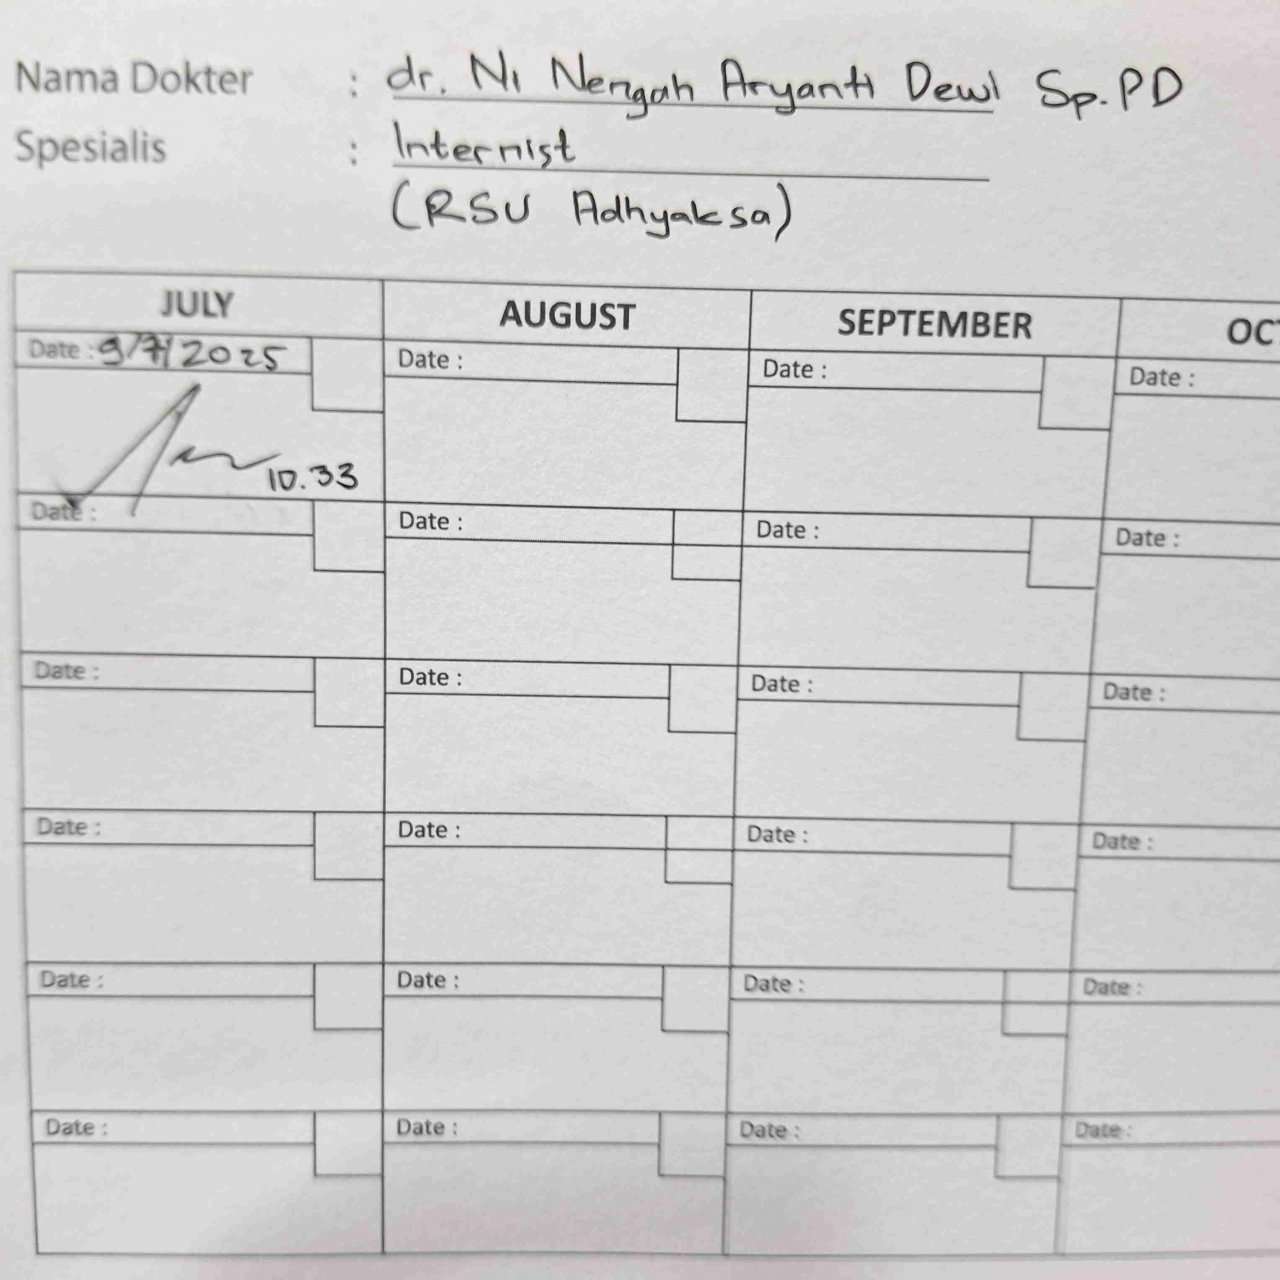 Nama Dokter : dr. Ni Nengah Aryanti Dewi Sp.PD
Spesialis : Internist
(RSU Adhyaksa)
JULY AUGUST SEPTEMBER OCT
Date : 9/7/2025 Date : Date : Date :
10.33
Date : Date : Date : Date :
Date : Date : Date : Date :
Date : Date : Date : Date :
Date : Date : Date : Date :
Date : Date : Date : Date :